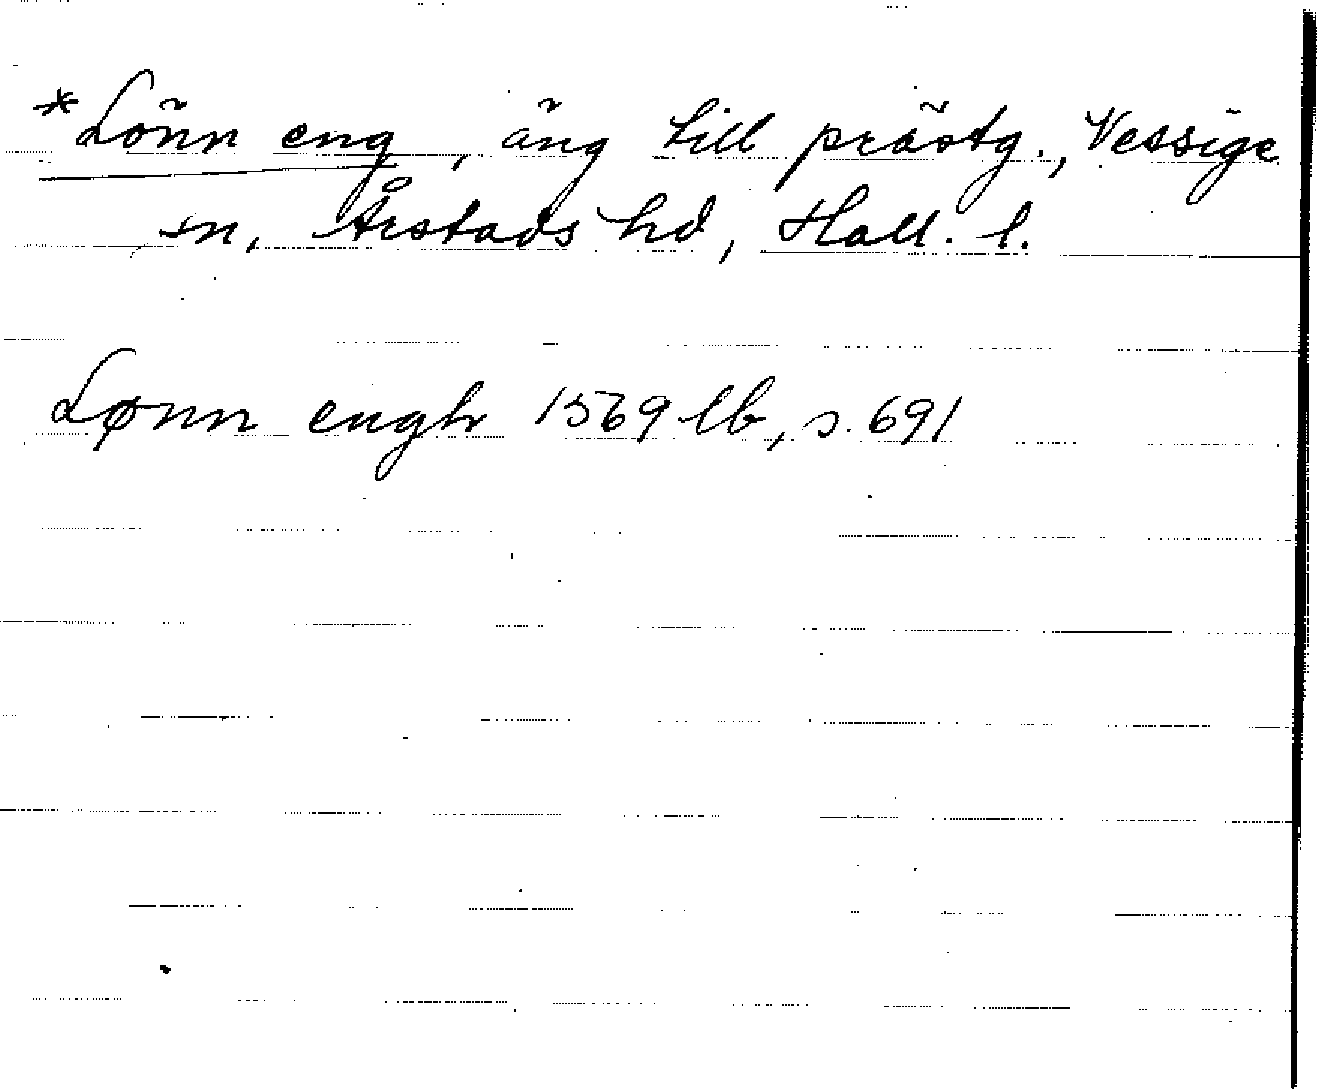 *Lönn eng, äng till prästg., Vessige
sn, Årstads hd, Hall. l.
Lønn engh 1569 lb, s. 691